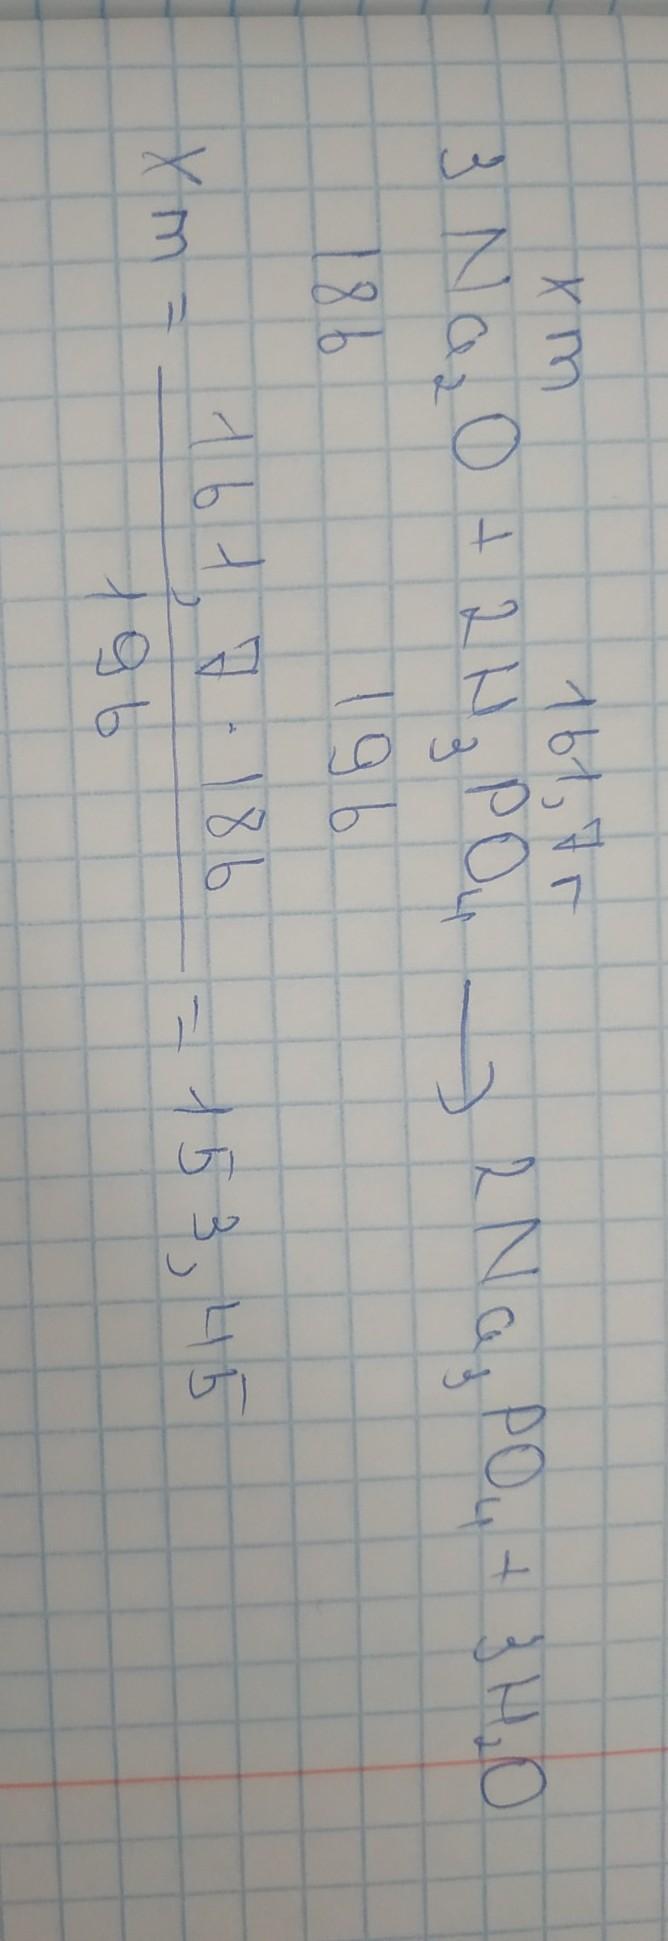 xm 161,7г
3Na₂O + 2H₃PO₄ → 2Na₃PO₄ + 3H₂O
186 196
Xm = 161,7 · 186 / 196 = 153,45